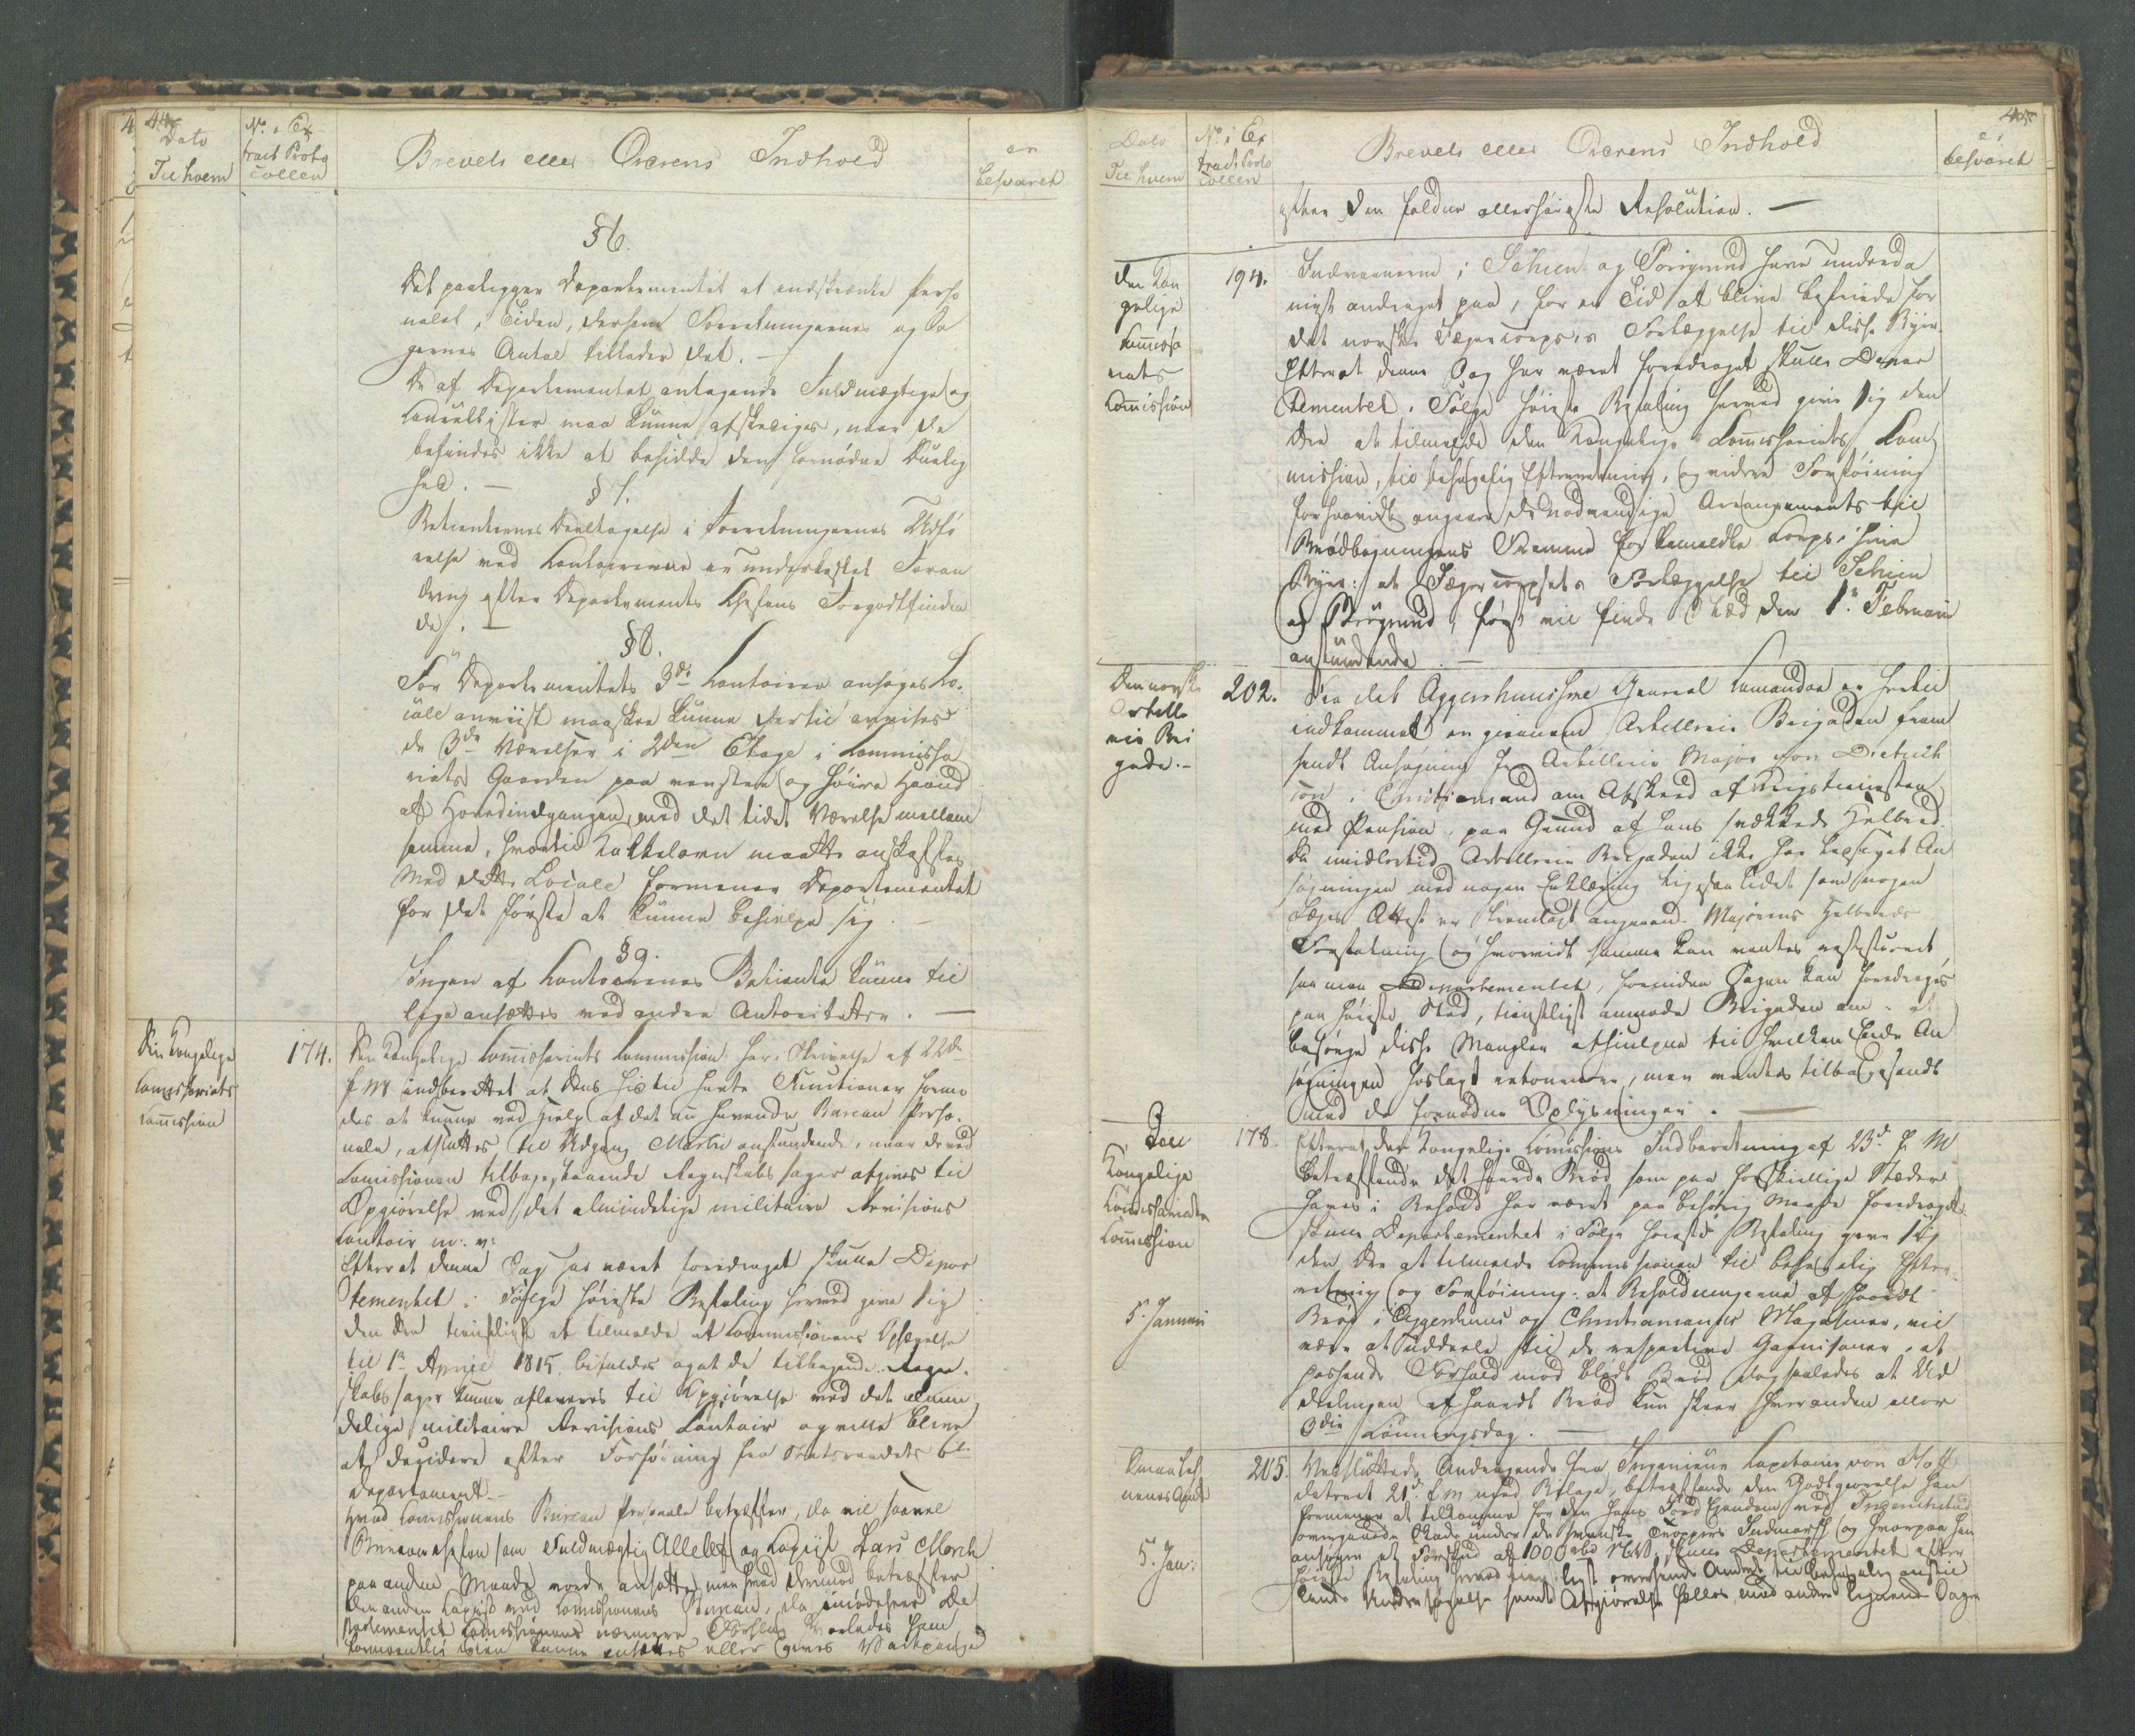 44
Dato
Til hvem
No. i Ex-
tract Proto
collen
Brevets eller Ordrens Indhold
er
besvaret
§ 6.
Det paaligger Departementet at indskrænke Perso
nalet i Tiden, dersom Forretningernes og Sa
gernes Antal tillader det. —
De af Departementet antagende Fuldmægtige og
Cancellister maa kunne afskediges, naar de
befindes ikke at besidde den fornødne Duelig
hed. —
§ 7.
Betienternes Deeltagelse i Forretningernes Udfø
relse ved Contoirerne er underkastet Foran
dring efter Departements Chefens Forgodtfinden
de. —
§ 8.
For Departementets 3de Contoirer ansøges Lo-
cale anviist maaskee kunne dertil anvises
de 3de Værelser i 2den Etage i Commissa
riats Gaarden paa venstre og høire Haand
af Hovedindgangen, med det lidet Værelse mellem
samme, hvortil Kakkelovn maatte anskaffes
Med dette Locale formener Departementet
for det første at kunne behielpe sig. —
§ 9.
Ingen af Contoirernes Betiente kunne til
lige ansættes ved andre Autoriteter. —
Den Kongelige
Commissariats
Commission
174.
Den Kongelige Commissariats Commission har i Skrivelse af 22de
f. M. indberettet at dens hidtil havte Functioner forme
des at kunne ved Hielp af det nu havende Bureau Perso-
nale, afsluttes til Udgang Martii anstundende, naar de ved
Commissionen tilbagestaaende Regnskabs sager afgives til
Opgiørelse ved det almindelige militaire Revisions
Contoir m. v.
Efterat denne Sag har været foredraget skulle Depar
tementet i Følge høieste Befaling herved give sig
den Ære tienstligst at tilmelde at Commissionens Ophævelse
til 1ste April 1815 bifaldes og at de tilbagev. Regn-
skabs sager kunne afleveres til Opgiørelse ved det almin
delige militaire Revisions Contoir og ville blive
at decidere efter Forføining fra Statsraadets 6te
Departement. —
Hvad Commissionens Bureau Personale betræffer, da vil saavel
Bureauchefen som Fuldmægtig Allelef og Copiist Lars Monch
paa anden Maade vorde ansatte, men hvad derimod betræffer
den anden Copiist ved Commissionens Bureau, da imødesees De
partementet Commissionens nærmere Forslag hvorledes ham
formeentlig igien kunne ansættes eller gives Vartpenge
45
Dato
Til hvem
No. i Ex
tract Proto
collen
Brevets eller Ordrens Indhold
er
besvaret
efter den faldne allerhøieste Resolution. —
Den Kon
gelige
Commissa
riats
Commission
194.
Indvaanerne i Schien og Porsgrund have underda
nigst andraget paa, for en Tid at blive befriede for
det norske Jægercorps's Forlæggelse til disse Byer.
Efterat denne Sag har været foredraget skulle Depar
tementet i Følge høieste Befaling herved give sig den
Ære at tilmelde den Kongelige Commissariats Com
mission, til behagelig Efterretning, og videre Forføining
forsaavidt angaaer de nødvendige Arrangements til
Brødbagningens Fremme for bemeldte Corps i hine
Byer: at Jægercorpsets Forlæggelse til Schien
og Porsgrund, først vil finde Sted den 1ste Februarii
anstundende. —
Den norske
Artille
rie Bri
gade. —
202.
Fra det Aggershuusiske General Commandoe er hertil
indkommet en giennem Artillerie Brigaden frem
sendt Ansøgning fra Artillerie Major von Dietrich
son i Christiansand om Afskeed af Krigstienesten
med Pension, paa Grund af hans svækkede Helbred.
Da imidlertid Artillerie Brigaden ikke har ledsaget An
søgningen med nogen Erklæring ligesaa lidet som nogen
Læge Attest er fremlagt angaaend. Majorens Helbreds
Forfatning og hvorvidt samme kan ventes restitueret
saa maa Departementet, forinden Sagen kan foredrages
paa høieste Sted, tienstligst anmode Brigaden om: at
besørge disse Mangler afhiulpne til hvilken Ende An
søgningen hoslagt returneres, men ventes tilbagesendt
med de fornødne Oplysninger. —
Den
Kongelige
Commissariats
Commission
5. Januari
178.
Efterat den Kongelige Commissions Indberetning af 23de f. M.
betræffende det haarde Brød som paa forskiellige Stæder
haves i Behold har været paa behørig Maade foredraget
skulle Departementet i Følge høieste Befaling give sig
den Ære at tilmelde Commissionen til behagelig Efter-
retning og Forføining: at Beholdningerne af haardt
Brød i Aggershuus og Christiansands Magasiner, vil
være at uddeele til de respective Garnisoner, et
passende Forhold mod blødt Brød dog saaledes at Ud
delingen af haardt Brød kun skeer hver anden eller
3die Lønningsdag. —
5. Jan:
205.
Vedsluttede Andragende fra Ingenieur Capitaine von Hoff
dateret 21de f. M. med Bilage, betræffende den Godtgiørelse han
formener at tilkomme for den hans Jord Eiendom ved
overgaaede Skade under de svenske Troppers Indmarsch og hvorpaa han
ansøger et Forskud af 1000 rbd N.V. skulle Departementet efter
høieste Befaling herved tienstligst oversende Amtet til behagelig anstil
lende Undersøgelse samt Afgiørelse fælles med andre lignende Sager